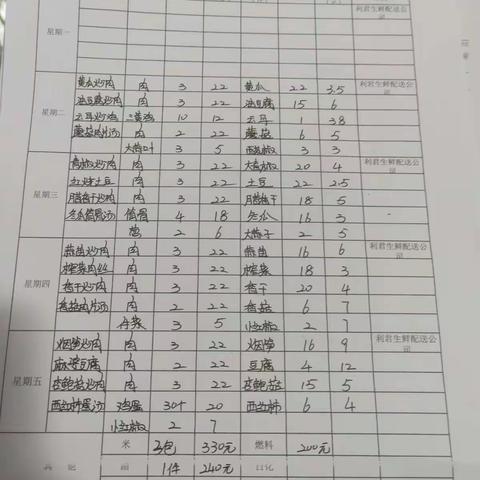 星期一 利君生鲜配送公司
黄瓜炒肉 肉 3 22 黄瓜 22 3.5 利君生鲜配送公司
油豆腐炒肉 肉 3 22 油豆腐 15 6
星期二 云耳炒鸡 三黄鸡 10 12 云耳 1 38
蘑菇肉片汤 肉 2 22 蘑菇 6 5
大蒜叶 3 5 西红椒 3 3
青椒炒肉 肉 3 22 大青椒 20 4 利君生鲜配送公司
红烧土豆 肉 3 22 土豆 22 2.5
星期三 腊香干炒肉 肉 3 22 腊香干 18 5
冬瓜筒骨汤 筒骨 4 18 冬瓜 16 3
葱 2 6 大蒜子 2 5
蒜苗炒肉 肉 3 22 蒜苗 16 6 利君生鲜配送公司
榨菜肉丝 肉 3 22 榨菜 18 3
星期四 香干炒肉 肉 3 22 香干 20 4
香菇肉片汤 肉 2 22 香菇 6 7
芹菜 3 5 小红椒 2 7
烟笋炒肉 肉 3 22 烟笋 16 9 利君生鲜配送公司
麻婆豆腐 肉 2 22 豆腐 4 12
星期五 杏鲍菇炒肉 肉 3 22 杏鲍菇 15 5
西红柿蛋汤 鸡蛋 30个 20 西红柿 6 4
小红椒 2 7
米 3包 330元 燃料 200元
其他 油 1件 240元 日化